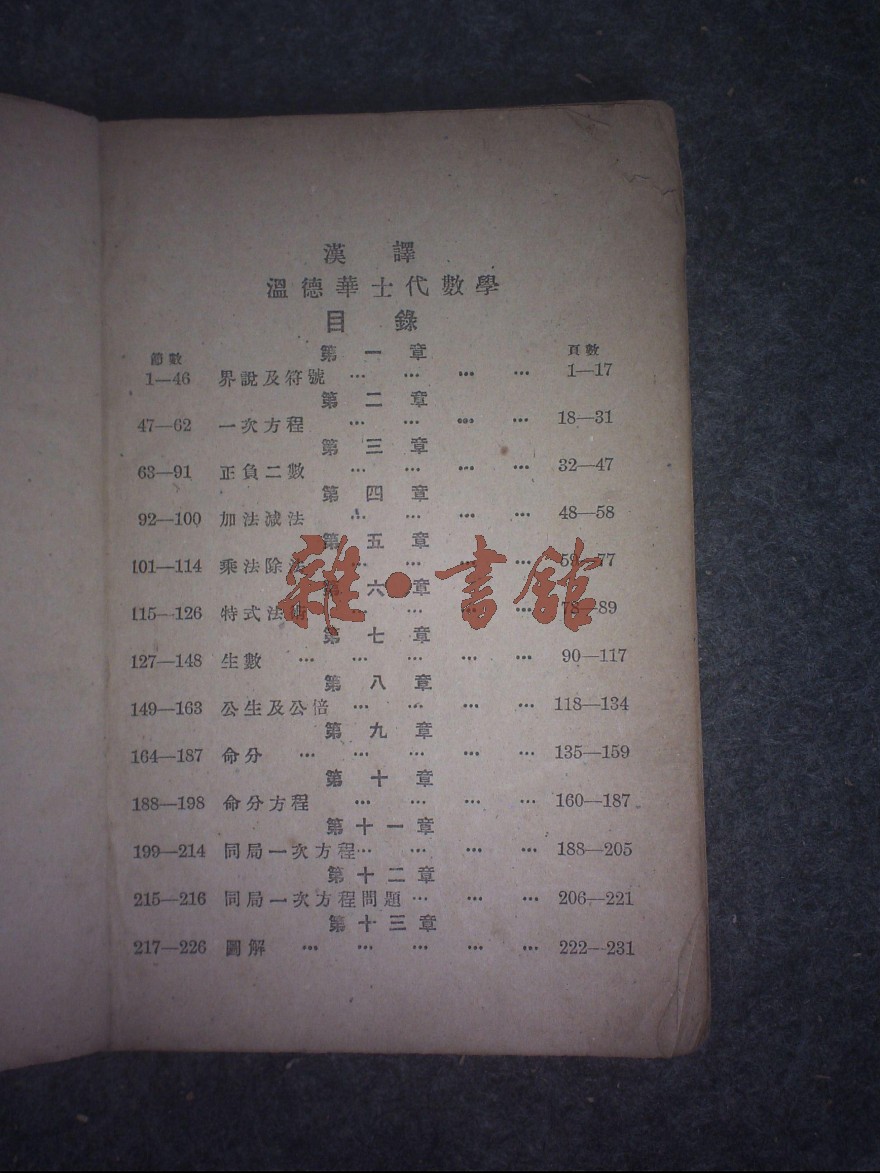 漢 譯
溫德華士代數學
目 錄
節數 頁數
第一章
1—46 界說及符號 … … … … 1—17
第二章
47—62 一次方程 … … … … 18—31
第三章
63—91 正負二數 … … … … 32—47
第四章
92—100 加法減法 … … … … 48—58
第五章
101—114 乘法除法 … … … … 59—77
第六章
115—126 特式法術 … … … … 78—89
第七章
127—148 生數 … … … … … 90—117
第八章
149—163 公生及公倍 … … … … 118—134
第九章
164—187 命分 … … … … … 135—159
第十章
188—198 命分方程 … … … … 160—187
第十一章
199—214 同局一次方程… … … … 188—205
第十二章
215—216 同局一次方程問題 … … … 206—221
第十三章
217—226 圖解 … … … … … 222—231
雜·書館